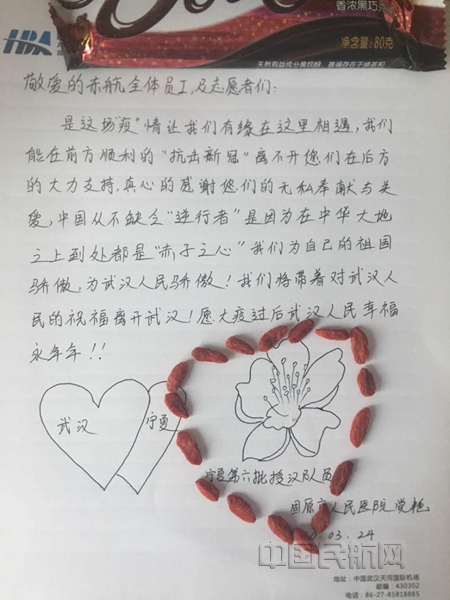 香浓黑巧克
净含量:80克
HBA
敬爱的赤航全体员工及志愿者们:
是这场"疫"情让我们有缘在这里相遇,我们
能在前方顺利的"抗击新冠"离不开您们在后方
的大力支持.真心的感谢您们的无私奉献与关
爱,中国从不缺乏"逆行者"是因为在中华大地
之上到处都是"赤子之心"我们为自己的祖国
骄傲,为武汉人民骄傲!我们将带着对武汉人
民的祝福离开武汉!愿大疫过后武汉人民幸福
永年年!!
武汉
宁夏
宁夏第六批援汉队员
固原市人民医院
.03.24
中国民航网
地址:中国武汉天河国际机场
邮编:430302
电话:86-27-85818885